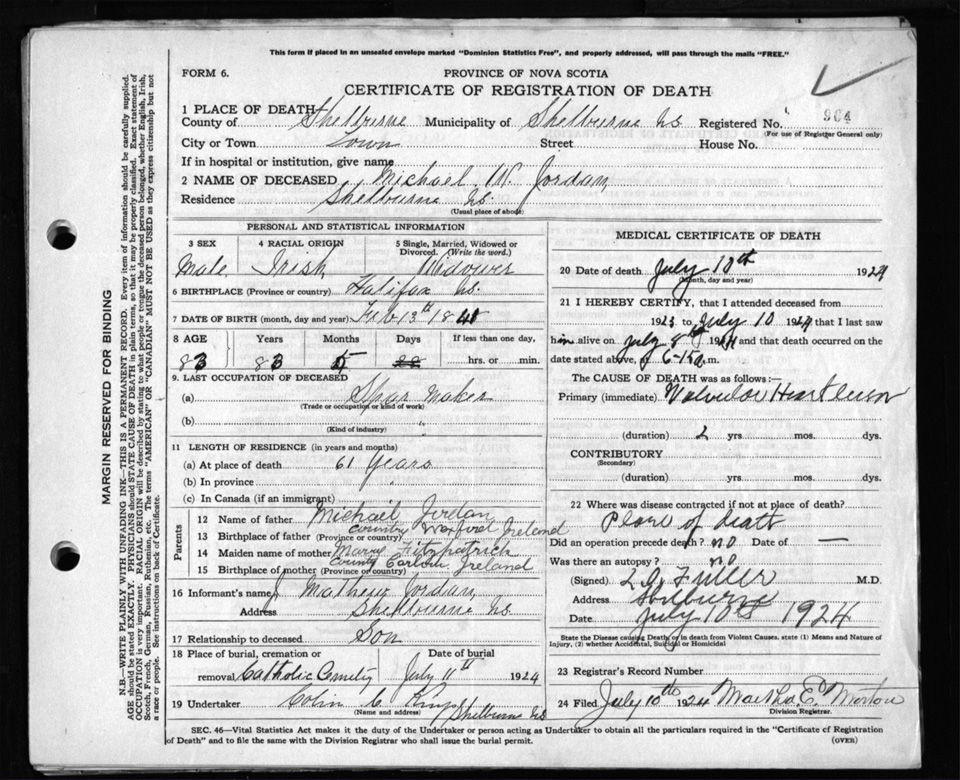 This form if placed in an unsealed envelope marked "Dominion Statistics Free", and properly addressed, will pass through the mails "FREE."
FORM 6.
PROVINCE OF NOVA SCOTIA
CERTIFICATE OF REGISTRATION OF DEATH
1 PLACE OF DEATH
County of Shelburne Municipality of Shelburne NS Registered No. 964
(For use of Registrar General only)
City or Town Town Street House No.
If in hospital or institution, give name
2 NAME OF DECEASED Michael W. Jordan
Residence Shelbourne NS.
(Usual place of abode)
MARGIN RESERVED FOR BINDING
N.B.—WRITE PLAINLY WITH UNFADING INK—THIS IS A PERMANENT RECORD. Every item of information should be carefully supplied.
AGE should be stated EXACTLY. PHYSICIANS should STATE CAUSE OF DEATH in plain terms, so that it may be properly classified. Exact statement of
OCCUPATION is very important. RACIAL ORIGIN will be described by stating to what people or tongue the deceased person belonged, whether English, Irish,
Scotch, French, German, Russian, Ruthenian, etc. The terms "AMERICAN" or "CANADIAN" MUST NOT BE USED as they express citizenship but not
a race or people. See instructions on back of Certificate.
PERSONAL AND STATISTICAL INFORMATION
3 SEX 4 RACIAL ORIGIN 5 Single, Married, Widowed or
Divorced. (Write the word.)
Male Irish Widower
6 BIRTHPLACE (Province or country) Halifax NS.
7 DATE OF BIRTH (month, day and year) Feb 13th 1841
8 AGE Years Months Days If less than one day,
83 83 5 hrs. or min.
9. LAST OCCUPATION OF DECEASED
(a) Spar Maker
(Trade or occupation or kind of work)
(b)
(Kind of industry)
11 LENGTH OF RESIDENCE (in years and months)
(a) At place of death 61 Years
(b) In province
(c) In Canada (if an immigrant)
Parents
12 Name of father Michael Jordan
13 Birthplace of father (Province or country) County Wexford Ireland
14 Maiden name of mother Mary Fitzpatrick
15 Birthplace of mother (Province or country) County Carlow Ireland
16 Informant's name J Mathew Jordan
Address Shelbourne NS
17 Relationship to deceased Son
18 Place of burial, cremation or Date of burial
removal Catholic Cemetry July 11th 1924
19 Undertaker Colin C King Shelburne NS
(Name and address)
MEDICAL CERTIFICATE OF DEATH
20 Date of death July 10th 1924
(Month, day and year)
21 I HEREBY CERTIFY, that I attended deceased from
1923 to July 10 1924 that I last saw
him alive on July 8th 1924 and that death occurred on the
date stated above, at 6-15 a.m.
The CAUSE OF DEATH was as follows:—
Primary (immediate) Valvular Heart Lesion
(duration) 2 yrs. mos. dys.
CONTRIBUTORY
(Secondary)
(duration) yrs. mos. dys.
22 Where was disease contracted if not at place of death?
Place of death
Did an operation precede death? no Date of —
Was there an autopsy? no
(Signed) L. O. Fuller M.D.
Address Shelburne
Date July 10th 1924
State the Disease causing Death, or in death from Violent Causes, state (1) Means and Nature of
Injury, (2) whether Accidental, Suicidal or Homicidal
23 Registrar's Record Number
24 Filed July 10th 1924 Martha E. Morton
Division Registrar.
SEC. 46—Vital Statistics Act makes it the duty of the Undertaker or person acting as Undertaker to obtain all the particulars required in the "Certificate of Registration
of Death" and to file the same with the Division Registrar who shall issue the burial permit. (OVER)